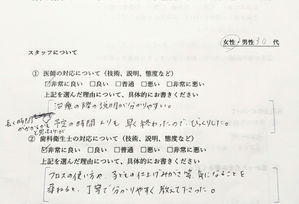 女性・男性 30 代
スタッフについて
① 医師の対応について（技術、説明、態度など）
☑非常に良い □良い □普通 □悪い □非常に悪い
上記を選んだ理由について、具体的にお書きください
治療の際の説明が分かりやすい。
長く時間が
かかるかな
と思ってたが
予定の時間よりも 早く終わったので びっくりした。
② 歯科衛生士の対応について（技術、説明、態度など）
☑非常に良い □良い □普通 □悪い □非常に悪い
上記を選んだ理由について、具体的にお書きください
フロスの使い方や、子どもの仕上げみがき等、気になることを
尋ねると、丁寧で分かりやすく教えて下さった。